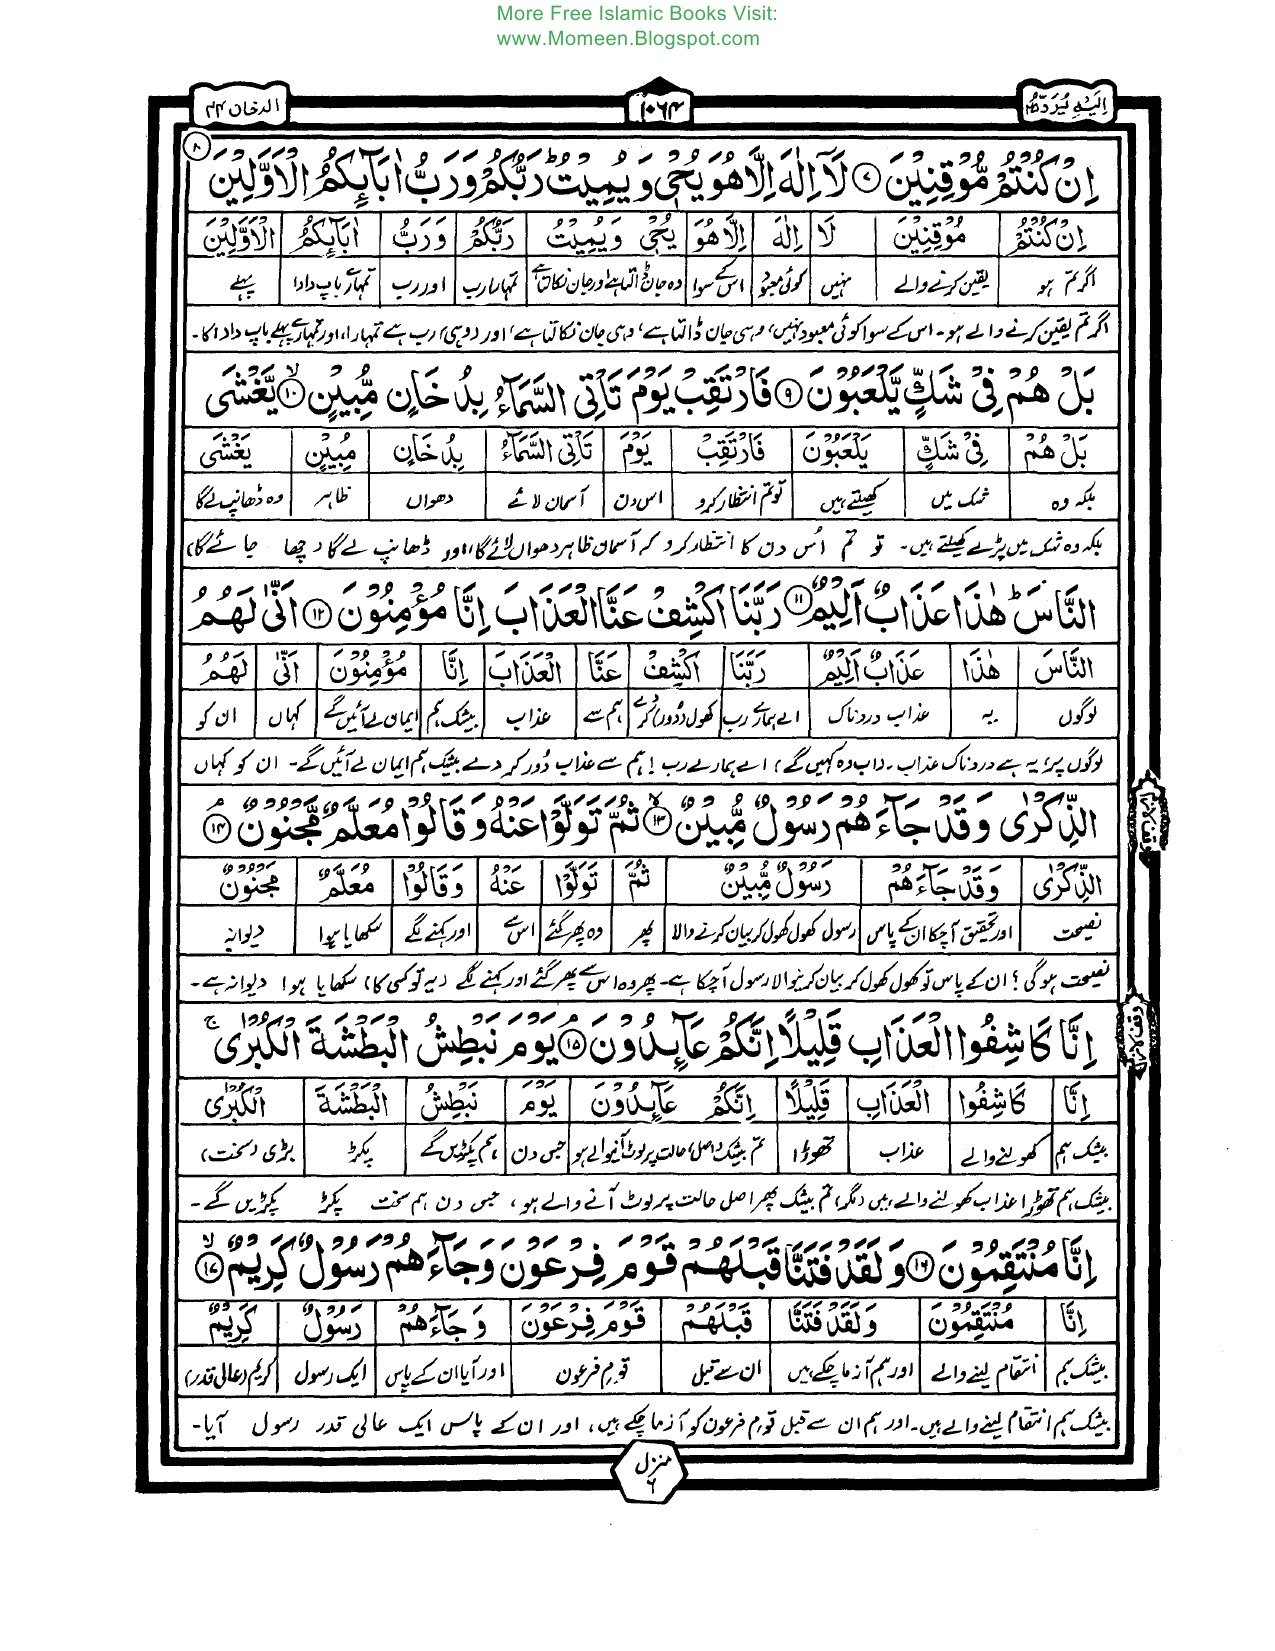 More Free Islamic Books Visit:
www.Momeen.Blogspot.com
اِلَيْهِ يُرَدُّ ٢٥
١٠٦٤
الدخان ٤٤
اِنْ كُنْتُمْ مُّوْقِنِيْنَ ۝٧ لَآ اِلٰهَ اِلَّا هُوَ يُحْيٖ وَيُمِيْتُ ؕ رَبُّكُمْ وَرَبُّ اٰبَآىِٕكُمُ الْاَوَّلِيْنَ ۝٨
اِنْ كُنْتُمْ مُوْقِنِيْنَ لَا اِلٰهَ اِلَّا هُوَ يُحْيٖ وَيُمِيْتُ رَبُّكُمْ وَرَبُّ اٰبَآىِٕكُمُ الْاَوَّلِيْنَ
اگر تم ہو یقین کرنے والے نہیں کوئی معبود اس کے سوا وہ جان ڈالتا ہے اور جان نکالتا ہے تمہارا رب اور رب تمہارے باپ دادا پہلے
اگر تم یقین کرنے والے ہو۔ اس کے سوا کوئی معبود نہیں، وہی جان ڈالتا ہے، وہی جان نکالتا ہے، اور (وہی) رب ہے تمہارا، اور تمہارے پہلے باپ دادا کا۔
بَلْ هُمْ فِيْ شَكٍّ يَّلْعَبُوْنَ ۝٩ فَارْتَقِبْ يَوْمَ تَاْتِي السَّمَآءُ بِدُخَانٍ مُّبِيْنٍ ۝١٠ۙ يَّغْشَى
بَلْ هُمْ فِيْ شَكٍّ يَلْعَبُوْنَ فَارْتَقِبْ يَوْمَ تَاْتِي السَّمَآءُ بِدُخَانٍ مُبِيْنٍ يَغْشَى
بلکہ وہ شک میں کھیلتے ہیں تو تم انتظار کرو اس دن آسمان لائے دھواں ظاہر وہ ڈھانپ لے گا
بلکہ وہ شک میں پڑے کھیلتے ہیں۔ تو تم اُس دن کا انتظار کرو کہ آسمان ظاہر دھواں لائے گا، (اور ڈھانپ لے گا (چھا جائے گا)
النَّاسَ ؕ هٰذَا عَذَابٌ اَلِيْمٌ ۝١١ رَبَّنَا اكْشِفْ عَنَّا الْعَذَابَ اِنَّا مُؤْمِنُوْنَ ۝١٢ اَنّٰى لَهُمُ
النَّاسَ هٰذَا عَذَابٌ اَلِيْمٌ رَبَّنَا اكْشِفْ عَنَّا الْعَذَابَ اِنَّا مُؤْمِنُوْنَ اَنّٰى لَهُمُ
لوگوں یہ عذاب دردناک اے ہمارے رب کھول (دُور) کر دے ہم سے عذاب بیشک ہم ایمان لے آئیں گے کہاں ان کو
لوگوں پر، یہ ہے دردناک عذاب۔ (اب وہ کہیں گے) اے ہمارے رب! ہم سے عذاب دُور کر دے بیشک ہم ایمان لے آئیں گے۔ ان کو کہاں
الذِّكْرٰى وَقَدْ جَآءَهُمْ رَسُوْلٌ مُّبِيْنٌ ۝١٣ۙ ثُمَّ تَوَلَّوْا عَنْهُ وَقَالُوْا مُعَلَّمٌ مَّجْنُوْنٌ ۝١٤ۘ
الذِّكْرٰى وَقَدْ جَآءَهُمْ رَسُوْلٌ مُّبِيْنٌ ثُمَّ تَوَلَّوْا عَنْهُ وَقَالُوْا مُعَلَّمٌ مَجْنُوْنٌ
نصیحت اور تحقیق آچکا ان کے پاس رسول کھول کھول کر بیان کرنے والا پھر وہ پھر گئے اس سے اور کہنے لگے سکھایا ہوا دیوانہ
نصیحت ہو گی؟ ان کے پاس تو کھول کھول کر بیان کرنیوالا رسول آچکا ہے۔ پھر وہ اس سے پھر گئے اور کہنے لگے (یہ تو کسی کا) سکھایا ہوا دیوانہ ہے۔
اِنَّا كَاشِفُوا الْعَذَابِ قَلِيْلًا اِنَّكُمْ عَآىِٕدُوْنَ ۝١٥ۘ يَوْمَ نَبْطِشُ الْبَطْشَةَ الْكُبْرٰى ۚ
اِنَّا كَاشِفُوا الْعَذَابِ قَلِيْلًا اِنَّكُمْ عَآىِٕدُوْنَ يَوْمَ نَبْطِشُ الْبَطْشَةَ الْكُبْرٰى
بیشک ہم کھولنے والے عذاب تھوڑا تم بیشک (اصل) حالت پر لوٹ آنیوالے ہو جس دن ہم پکڑیں گے پکڑ بڑی (سخت)
بیشک ہم تھوڑا عذاب کھولنے والے ہیں (مگر) تم بیشک پھر اصل حالت پر لوٹ آنے والے ہو، جس دن ہم سخت پکڑ پکڑیں گے۔
اِنَّا مُنْتَقِمُوْنَ ۝١٦ وَلَقَدْ فَتَنَّا قَبْلَهُمْ قَوْمَ فِرْعَوْنَ وَجَآءَهُمْ رَسُوْلٌ كَرِيْمٌ ۝١٧ۙ
اِنَّا مُنْتَقِمُوْنَ وَلَقَدْ فَتَنَّا قَبْلَهُمْ قَوْمَ فِرْعَوْنَ وَجَآءَهُمْ رَسُوْلٌ كَرِيْمٌ
بیشک ہم انتقام لینے والے اور ہم آزما چکے ہیں ان سے قبل قوم فرعون اور آیا ان کے پاس ایک رسول کریم (عالی قدر)
بیشک ہم انتقام لینے والے ہیں۔ اور ہم ان سے قبل قوم فرعون کو آزما چکے ہیں، اور ان کے پاس ایک عالی قدر رسول آیا۔
منزل
٦